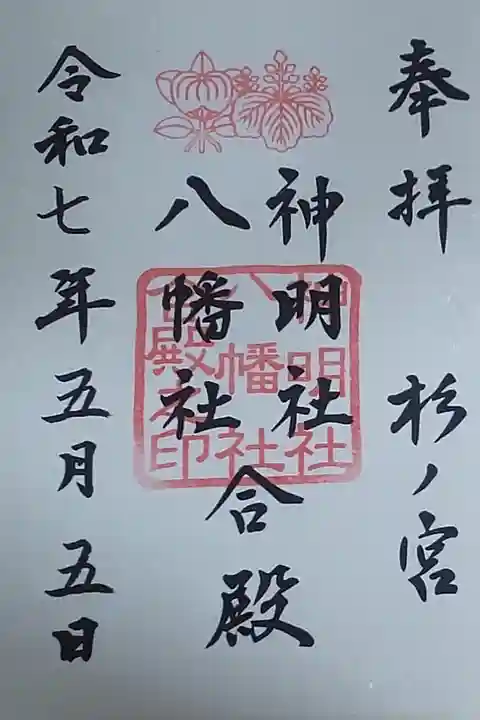 奉拝 杉ノ宮
神明社
八幡社
合殿
令和七年五月五日
神明社
八幡社
合殿之印